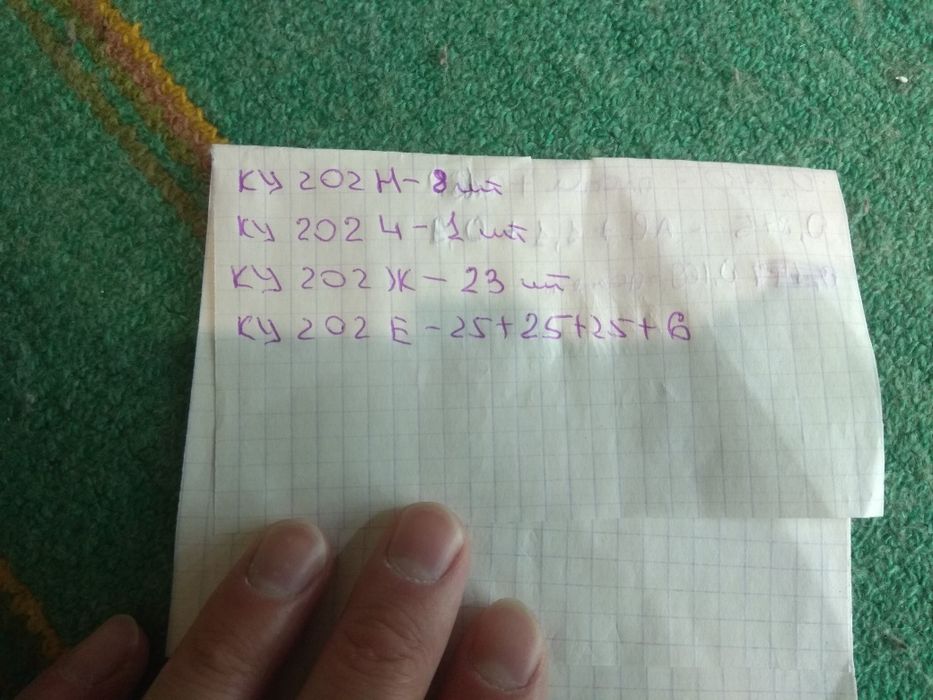 КУ 202 Н - 8 шт
КУ 202 Ч - 1 шт
КУ 202 Ж - 23 шт
КУ 202 Е - 25+25+25+6